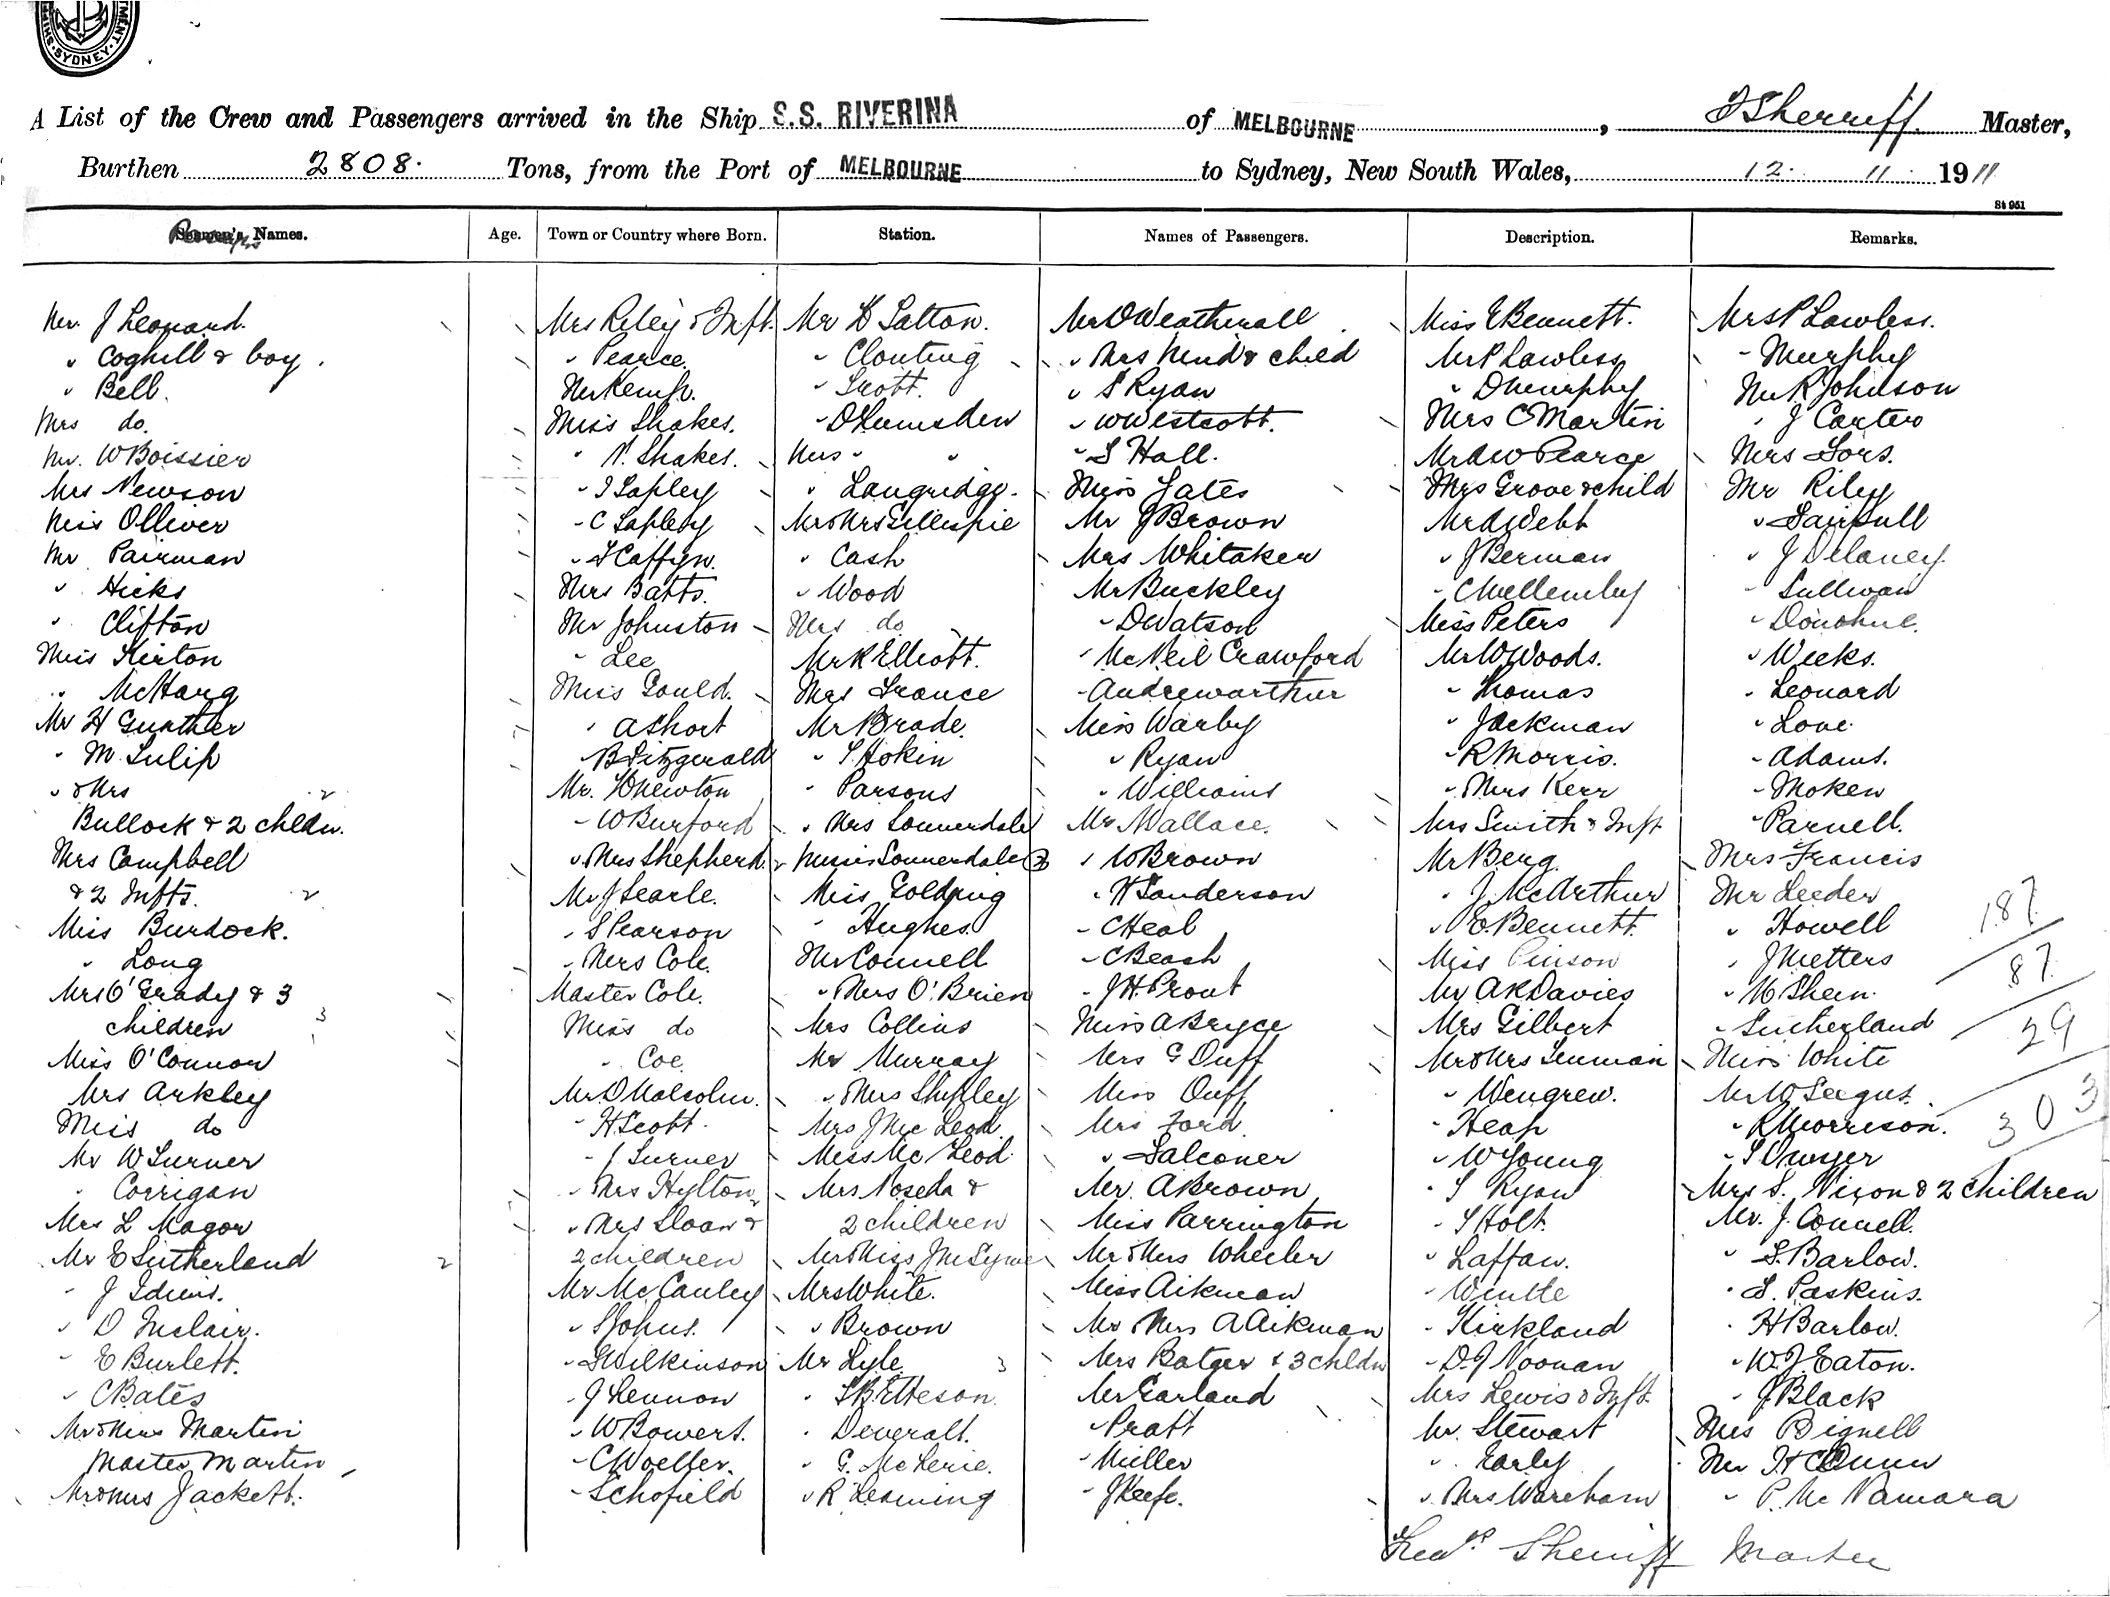 SYDNEY
A List of the Crew and Passengers arrived in the Ship S.S. RIVERINA of MELBOURNE, Sherriff. Master,
Burthen 2808. Tons, from the Port of MELBOURNE to Sydney, New South Wales, 12. 11. 1911
St 951
Seamen's Names. Age. Town or Country where Born. Station. Names of Passengers. Description. Remarks.
Mr. J Leonard. Mrs Riley & Inft. Mr Mr O Weatherall Miss E Bennett. Mrs P Lawless.
" Coghill & boy. " Pearce. " Clouting " Mrs & child Mr P Lawless " Murphy
" Bell. Mr Kemp. " Scott. " S Ryan " D Murphy Mr R Johnson
Mrs do. Miss Shakes. " D Lumsden " W Westcott. Mrs C Martin " J Carter
Mr. W Boissier " V. Shakes. Mrs " " " S Hall. Mr A W Pearce Mrs
Mrs Newson " Lapley " Langridge. Miss Yates Mrs Grove & child Mr Riley
Miss Olliver " C Lapley Mr & Mrs Gillespie Mr J Brown Mr A Webb " Fairfull
Mr Pairman " Caffyn. " Cash Mrs Whitaker " J Berman " J Delaney.
" Hicks Mrs Batts. " Wood Mr Buckley " C Mellemby " Sullivan
" Clifton Mr Johnston Mrs do " D Watson Miss Peters " Donohue.
Miss Kirton " Lee Mr R Elliott. " McNeil Crawford Mr W Woods. " Weeks.
" McHarg Miss Gould. Mrs France " Andrewartha " Thomas " Leonard
Mr H Gunther " A Short Mr Brade. Miss Warby " Jackman " Love
" M Tulip " B Fitzgerald " S Hokin " Ryan " R Morris. " Adams.
" & Mrs 2 Mr. H Newton " Parsons " Williams " Mrs Kerr " Moken
Bullock & 2 chldn. " W Burford " Mrs Sonnerdale Mr Wallace. Mrs Smith & Inft " Parnell.
Mrs Campbell " Mrs Shepherd. Misses Sonnerdale " W Brown Mr Berg. Mrs Francis
& 2 Infts. 2 Mr J Searle. Miss Golding " H Sanderson " J. McArthur Mr Leeder
Miss Burdock. " S Pearson " Hughes " C Heal " E. Bennett. " Howell 187
" Long " Mrs Cole. Mr Connell " C Beach Miss Pinson " J Metters 87
Mrs O'Grady & 3 Master Cole. " Mrs O'Brien " J H. Prout Mr A R Davies " M Shein.
children 3 Miss do Mrs Collins Miss A Bryce Mrs Gilbert " Sutherland 29
Miss O'Connor " Coe. Mr Murray Mrs G Duff Mr & Mrs Miss White
Mrs Arkley Mr D Malcolm. " Mrs Shipley Miss Duff " Wengrew. Mr W
Miss do " H Scott. Mrs J McLeod Mrs Ford " Heap " R Morrison. 303
Mr W Turner " J Turner Miss McLeod. " Falconer " W Young " S Dwyer
" Corrigan " Mrs Hylton Mrs Noseda & Mr. A Brown " S Ryan Mrs S. Nixon & 2 children
Mrs L Magor " Mrs Sloan & 2 children Miss Parrington " S Holt. Mr. J. Connell.
Mr E Sutherland 2 2 children Mr & Miss J McSyme Mr & Mrs Wheeler " Laffan. " S. Barlow.
" J Mr McCauley Mrs White. Miss Aikman " Wintle " S. Paskins.
" D Sinclair. " S Johns. " Brown Mr Mrs A Aikman " Kirkland " H Barlow.
" E Burlett. " S Wilkinson Mr Lyle 3 Mrs Batger & 3 chldn " D. J Noonan " W. J Eaton.
" C Bates " J Lennon " S B Etteson. Mr Garland Mrs Lewis & Inft. " J Black
Mr & Mrs Martin " W Bowers. " Deveralt. " Pratt Mr. Stewart Miss Bignell
Master Martin " C Woelfer. " G. McKerie. " Miller " Early Mr H C Dunn
Mr & Mrs Jackett. " Schofield " R Leaming " J Keefe. " Mrs Wareham " P. McNamara
Sherriff Master